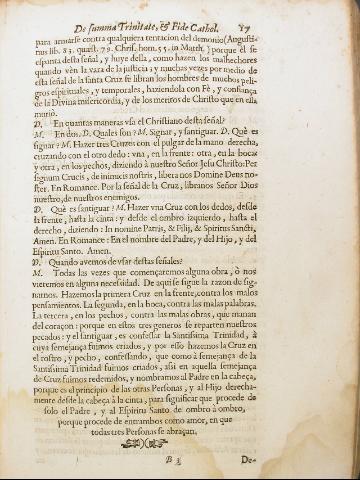 De summa Trinitate, & Fide Cathol. 17
para armarse contra qualquiera tentacion del demonio (Augusti-
nus lib. 83. quæst. 79. Chris. hom. 55. in Matth.) porque él se
espanta desta señal, y huye della, como hazen los malhechores
quando vèn la vara de la justicia; y muchas vezes por medio de
esta señal de la santa Cruz se libran los hombres de muchos peli-
gros espirituales, y temporales, haziendola con Fè, y confiança
de la Divina misericordia, y de los meritos de Christo que en ella
murió.
D. En quantas maneras vsa el Christiano desta señal?
M. En dos. D. Quales son? M. Signar, y santiguar. D. Què es
signar? M. Hazer tres Cruzes con el pulgar de la mano derecha,
cruzando con el otro dedo: vna, en la frente: otra, en la boca
y otra, en los pechos, diziendo à nuestro Señor Jesu Christo: Per
signum Crucis, de inimicis nostris, libera nos Domine Deus no-
ster. En Romance. Por la señal de la Cruz, libranos Señor Dios
nuestro, de nuestros enemigos.
D. Què es santiguar? M. Hazer vna Cruz con los dedos, desde
la frente, hasta la cinta: y desde el ombro izquierdo, hasta el
derecho, diziendo: In nomine Patris, & Filij, & Spiritus Sancti,
Amen. En Romance: En el nombre del Padre, y del Hijo, y del
Espiritu Santo. Amen.
D. Quando avemos de vsar destas señales?
M. Todas las vezes que començaremos alguna obra, ò nos
vieremos en alguna necessidad. De aqui se sigue la razon de sig-
narnos. Hazemos la primera Cruz en la frente, contra los malos
pensamientos. La segunda, en la boca, contra las malas palabras.
La tercera, en los pechos, contra las malas obras, que manan
del coraçon: porque en estos tres generos se reparten nuestros
pecados: y el santiguar, es confessar la Santissima Trinidad, à
cuya semejança fuimos criados, y por esso hazemos la Cruz en
el rostro, y pecho, confessando, que como à semejança de la
Santissima Trinidad fuimos criados, assi en aquella semejança
de Cruz fuimos redemidos, y nombramos al Padre en la cabeça,
porque es el principio de las otras Personas, y al Hijo derecha-
mente desde la cabeça à la cinta, para significar que procede de
solo el Padre, y al Espiritu Santo de ombro à ombro,
porque procede de entrambos como amor, en que
todas tres Personas se abraçan.
De-